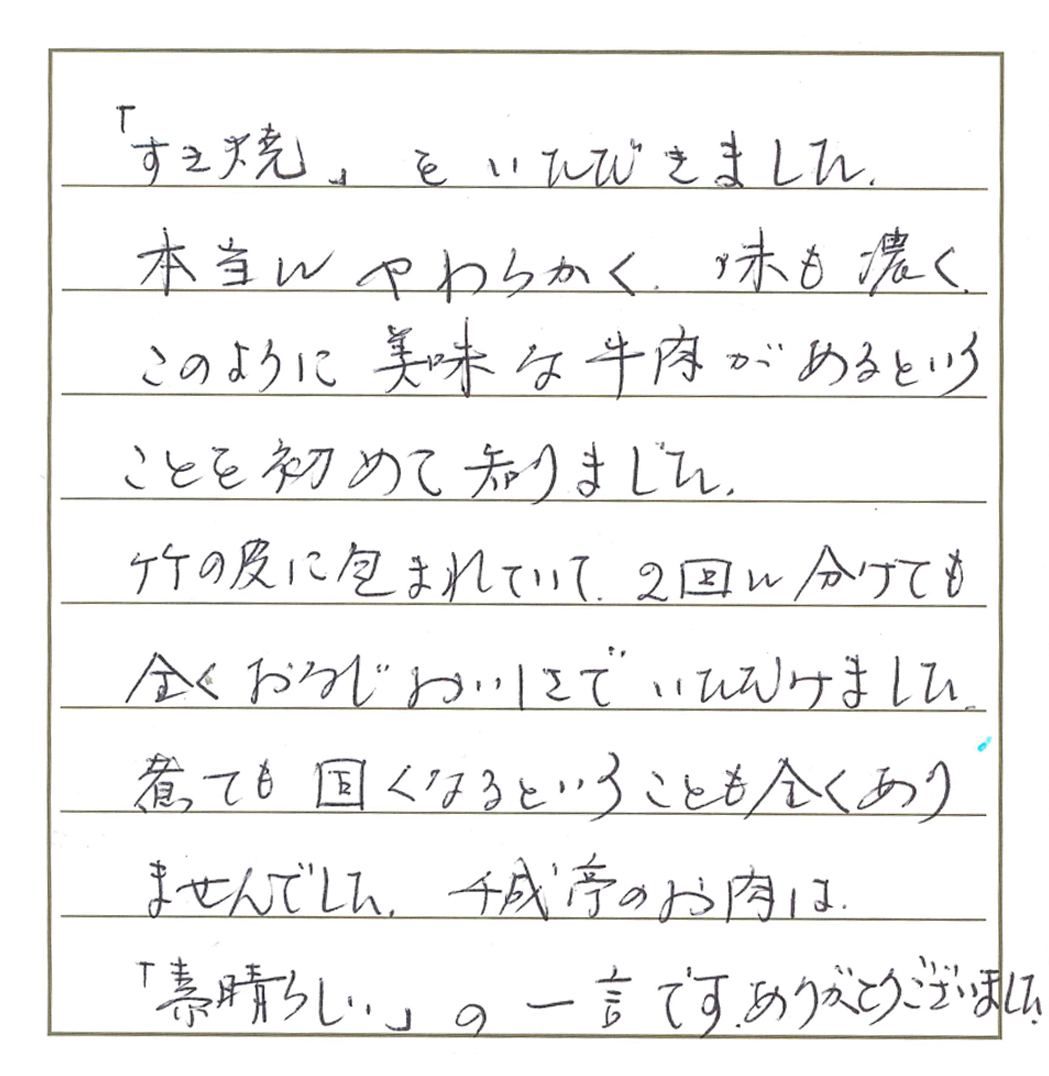 「すき焼」をいただきました。
本当にやわらかく、味も濃く、
このように美味な牛肉があるという
ことを初めて知りました。
竹の皮に包まれていて、2回に分けても
全くおなじおいしさでいただけました。
煮ても固くなるということも全くあり
ませんでした。千成亭のお肉は、
「素晴らしい」の一言です。ありがとうございました。